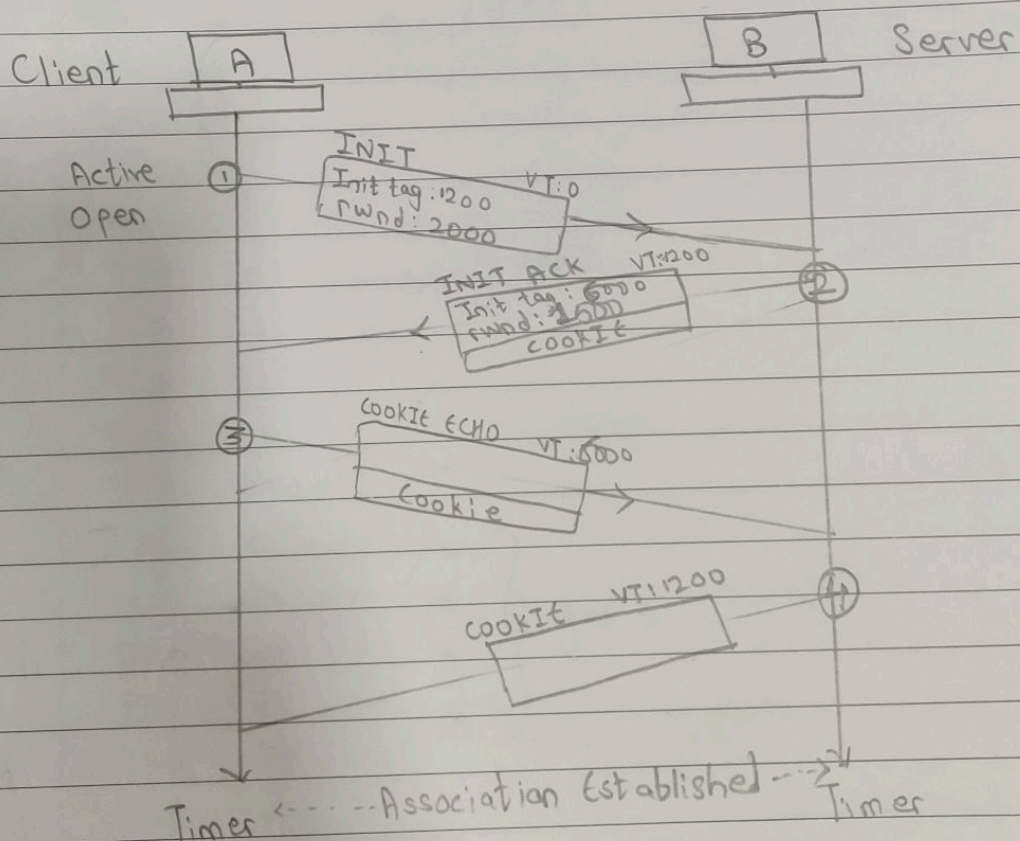 Client A B Server
Active 1
Open
INIT
VT:0
Init tag:1200
rwnd: 2000
INIT ACK VT:1200
2
Init tag:
rwnd:
COOKIE
3
COOKIE ECHO
VT:
Cookie
4
COOKIE VT:1200
Timer <-----Association Established---->Timer